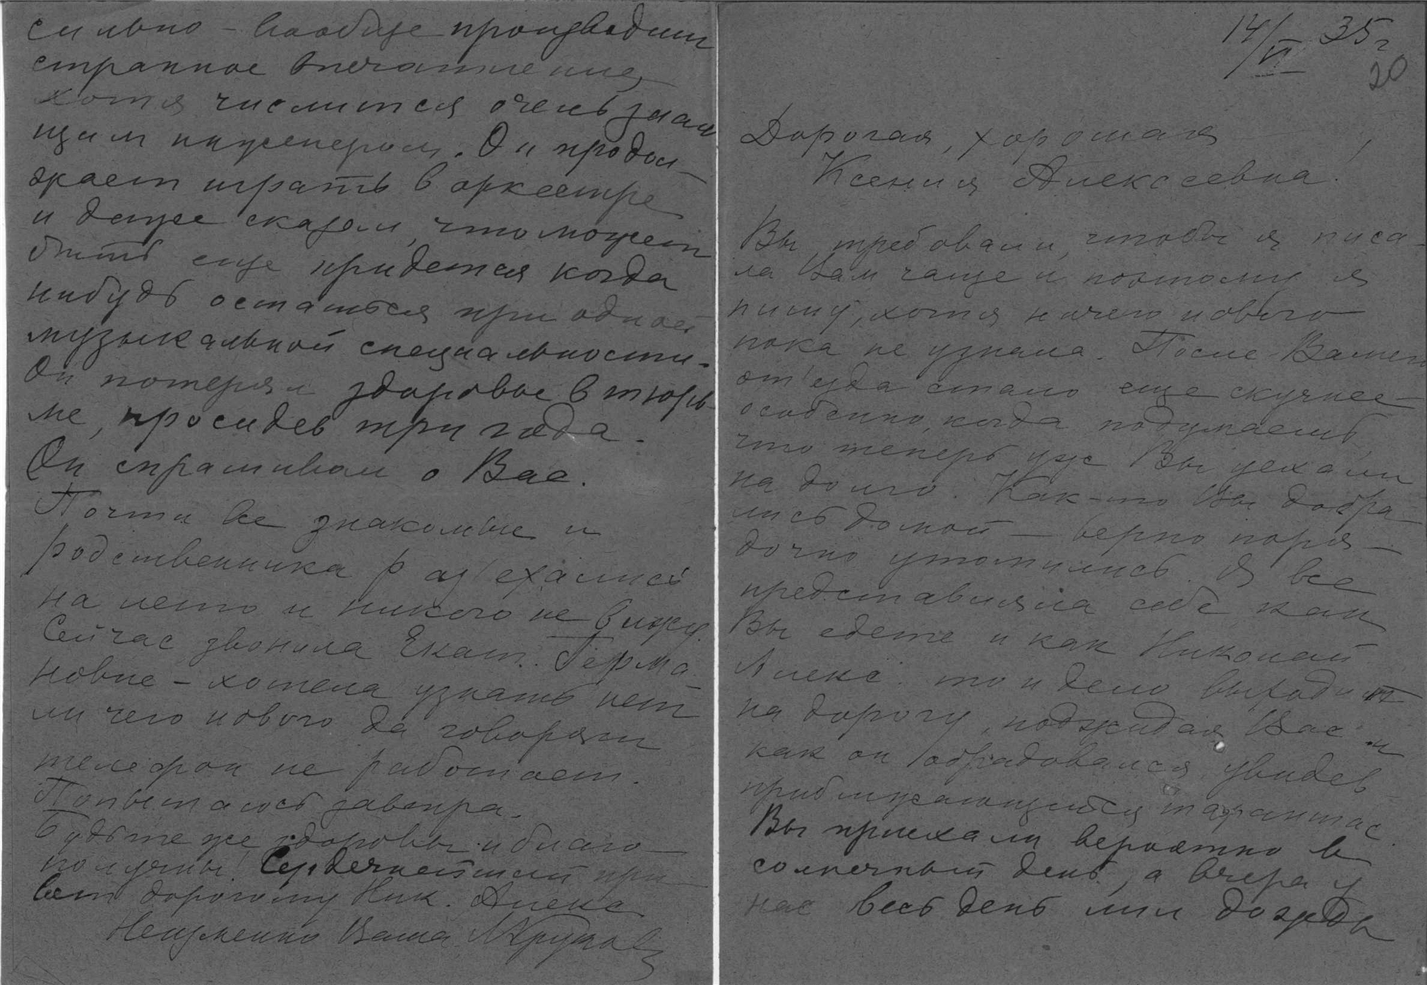 14/VI 35 г
20
Дорогая, хорошая
Ксения Алексеевна!
Вы требовали, чтобы я писа-
ла Вам чаще и поэтому я
пишу, хотя ничего нового
пока не узнала. После Вашего
от'езда стало еще скучнее –
особенно, когда подумаешь
что теперь уж Вы уехали
на долго. Как-то Вы добра-
лись домой – верно поря-
дочно утомились. Я все
представляла себе как
Вы едете и как Николай
Алекс. то и дело выходит
на дорогу, поджидая Вас и
как он обрадовался, увидев
приближающийся тарантас.
Вы приехали вероятно в
солнечный день, а вчера у
нас весь день лил дождь
сильно – вообще производит
странное впечатление,
хотя числится очень знаю
щим инженером. Он продол-
жает играть в оркестре
и даже сказал, что может
быть еще придется когда
нибудь остаться при одной
музыкальной специальности.
Он потерял здоровье в тюрь-
ме, просидев три года.
Он спрашивал о Вас.
Почти все знакомые и
родственники раз'ехались
на лето и никого не вижу.
Сейчас звонила Екат. Герма
новне – хотела узнать нет
ли чего нового да говорят
телефон не работает.
Попытаюсь завтра.
Будьте же здоровы и благо-
получны! Сердечнейший при-
вет дорогому Ник. Алекс.
Неизменно Ваша